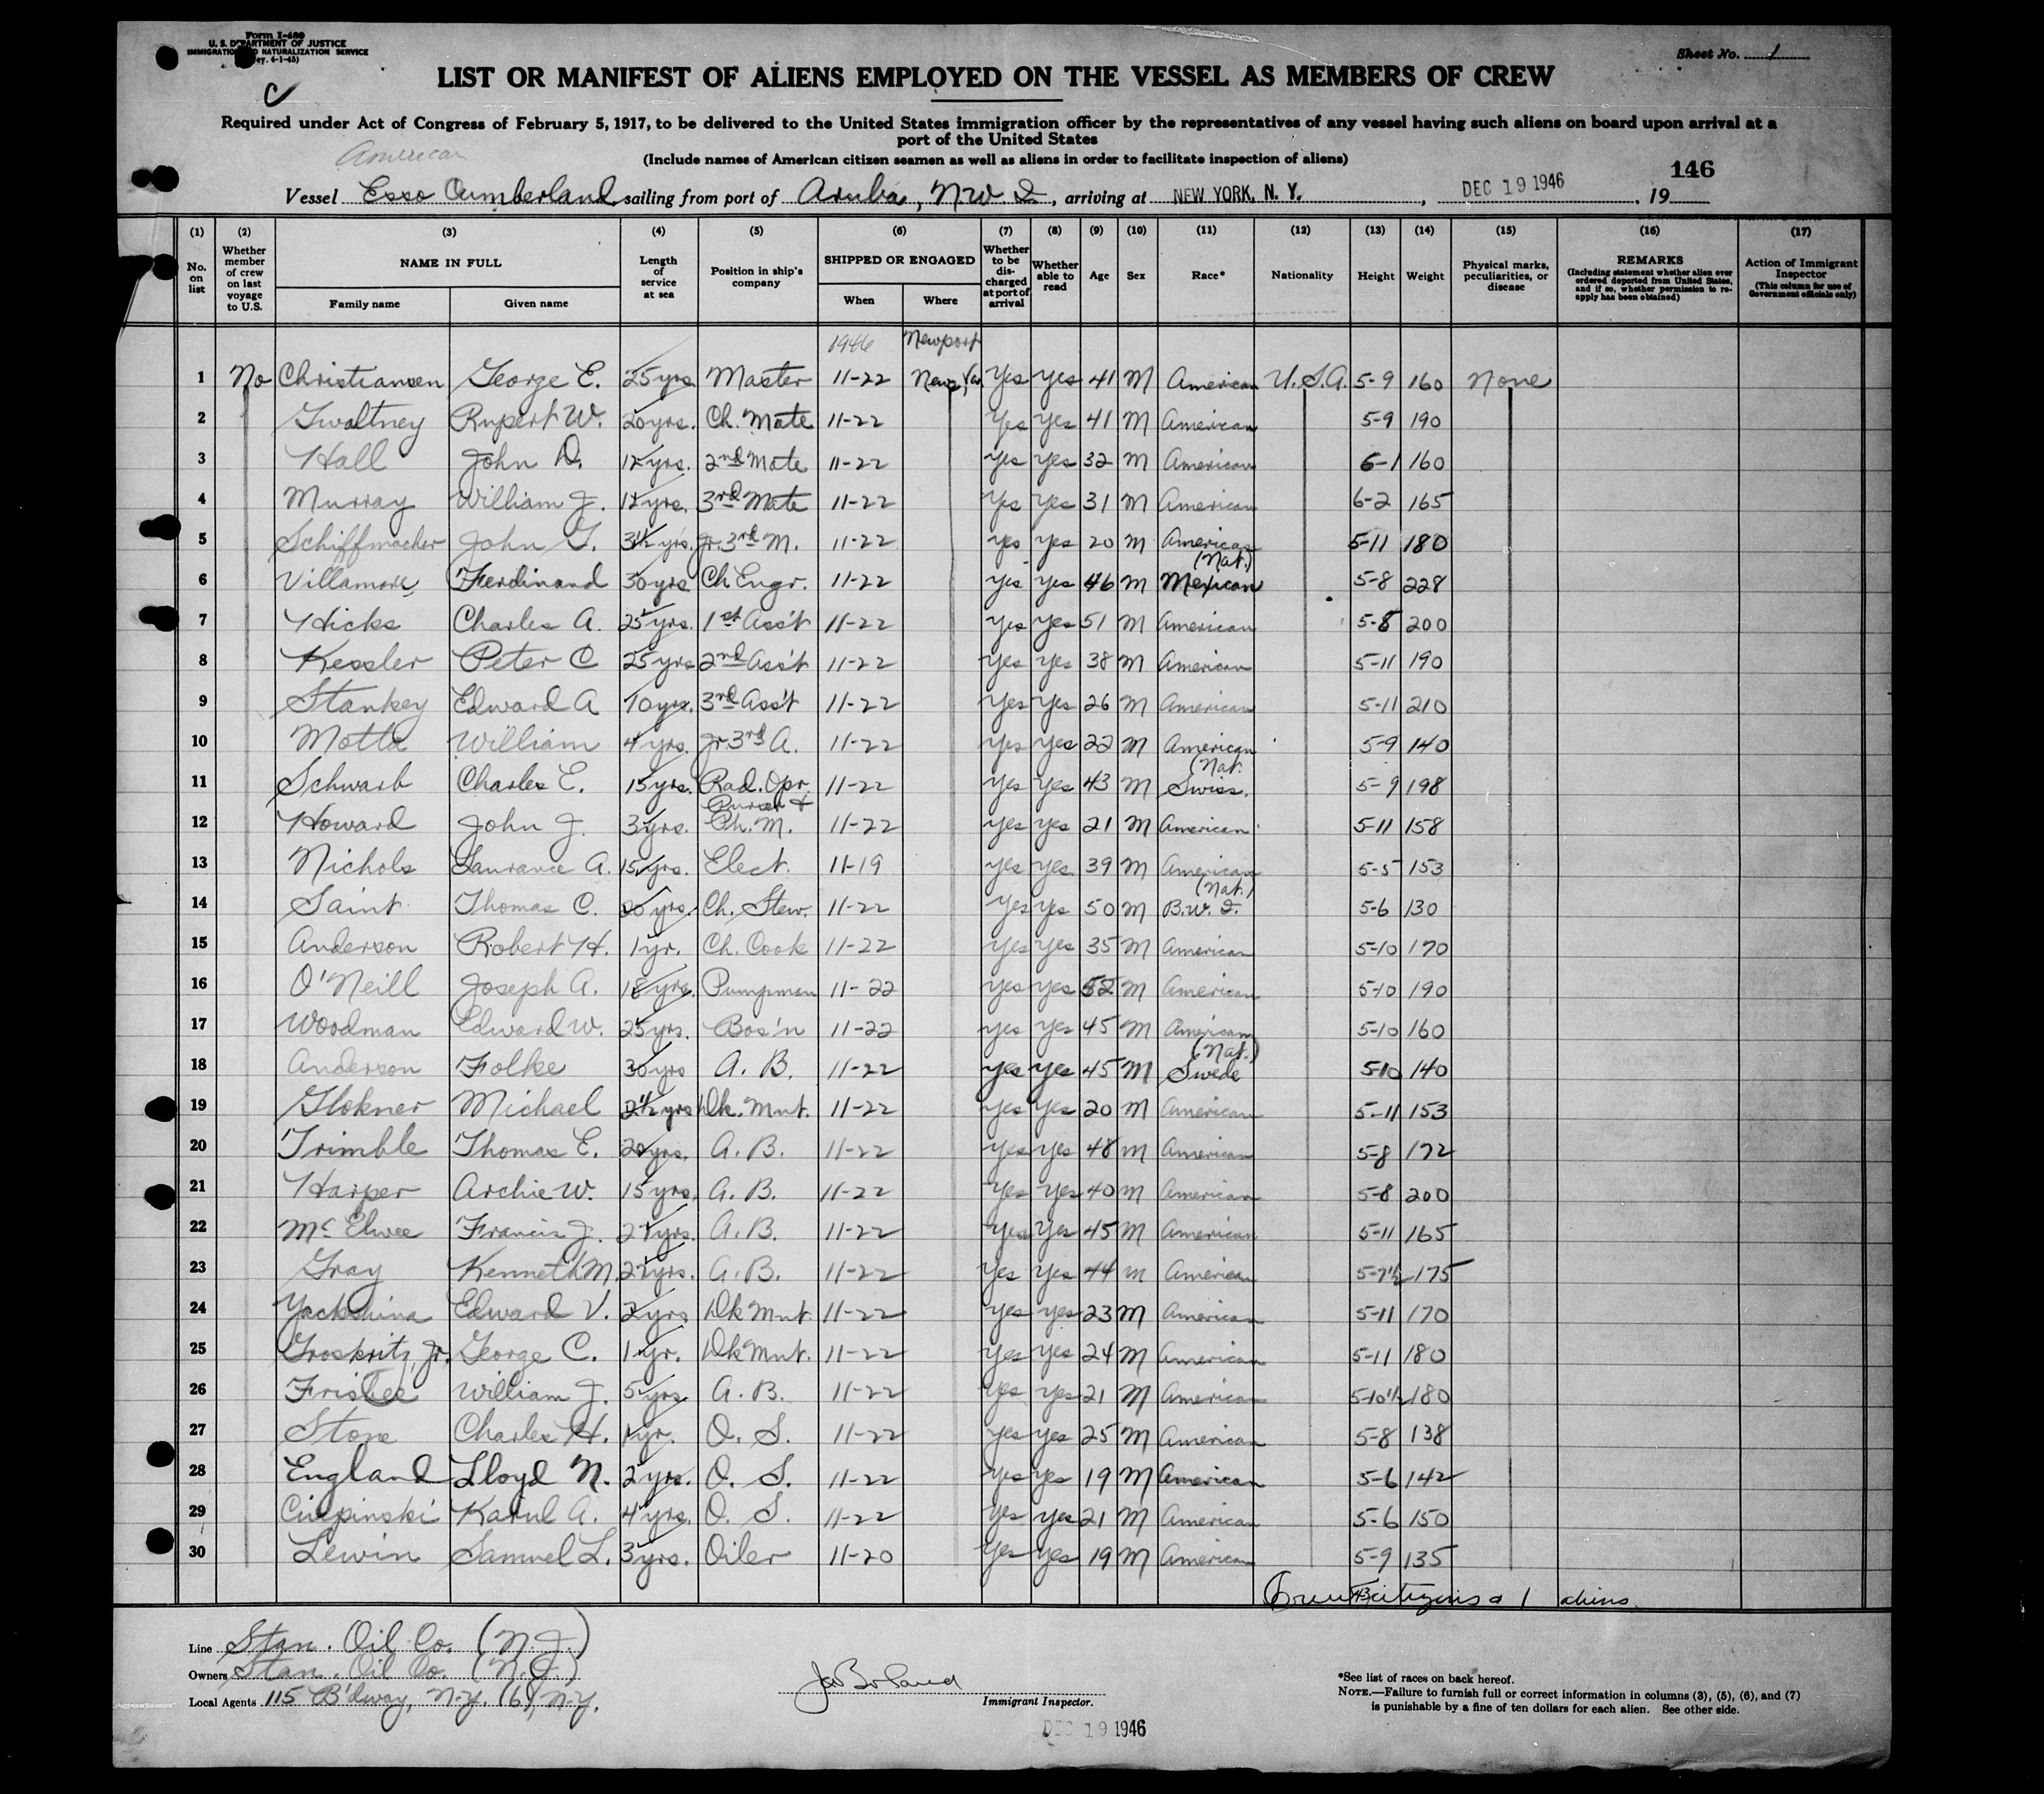 Form I-480
U. S. DEPARTMENT OF JUSTICE
IMMIGRATION AND NATURALIZATION SERVICE
(Rev. 4-1-45)
Sheet No. 1
C
LIST OR MANIFEST OF ALIENS EMPLOYED ON THE VESSEL AS MEMBERS OF CREW
Required under Act of Congress of February 5, 1917, to be delivered to the United States immigration officer by the representatives of any vessel having such aliens on board upon arrival at a
port of the United States
American
(Include names of American citizen seamen as well as aliens in order to facilitate inspection of aliens)
146
Vessel Esso Cumberland, sailing from port of Aruba, N.W.I., arriving at NEW YORK, N. Y., DEC 19 1946, 19
(1) No. on list (2) Whether member of crew on last voyage to U.S. (3) NAME IN FULL Family name Given name (4) Length of service at sea (5) Position in ship's company (6) SHIPPED OR ENGAGED When Where (7) Whether to be discharged at port of arrival (8) Whether able to read (9) Age (10) Sex (11) Race* (12) Nationality (13) Height (14) Weight (15) Physical marks, peculiarities, or disease (16) REMARKS (Including statement whether alien ever ordered deported from United States, and if so, whether permission to re-apply has been obtained) (17) Action of Immigrant Inspector (This column for use of Government officials only)
1946 Newport
1 No Christiansen George E. 25 yrs. Master 11-22 News, Va. Yes Yes 41 M American U.S.A. 5-9 160 None
2 Gwaltney Rupert W. 20 yrs. Ch. Mate 11-22 Yes Yes 41 M American 5-9 190
3 Hall John D. 12 yrs. 2nd Mate 11-22 Yes Yes 32 M American 6-1 160
4 Murray William J. 12 yrs. 3rd Mate 11-22 Yes Yes 31 M American 6-2 165
5 Schiffmacher John G. 3½ yrs. Jr. 3rd M. 11-22 Yes Yes 20 M American 5-11 180
6 Villamore Ferdinand 30 yrs. Ch Engr. 11-22 Yes Yes 46 M (Nat.) Mexican 5-8 228
7 Hicks Charles A. 25 yrs. 1st Ass't 11-22 Yes Yes 51 M American 5-8 200
8 Kessler Peter C 25 yrs 2nd Ass't 11-22 Yes Yes 38 M American 5-11 190
9 Stankey Edward A 10 yrs. 3rd Ass't 11-22 Yes Yes 26 M American 5-11 210
10 Motta William 4 yrs. Jr. 3rd A. 11-22 Yes Yes 22 M American 5-9 140
11 Schwarb Charles E. 15 yrs. Rad. Opr. 11-22 Yes Yes 43 M (Nat. Swiss. 5-9 198
12 Howard John J. 3 yrs. Purser & Ph. M. 11-22 Yes Yes 21 M American 5-11 158
13 Nichols Laurance A. 15 yrs. Elect. 11-19 Yes Yes 39 M American 5-5 153
14 Saint Thomas C. 20 yrs. Ch. Stew. 11-22 Yes Yes 50 M (Nat.) B.W.I. 5-6 130
15 Anderson Robert H. 1 yr. Ch. Cook 11-22 Yes Yes 35 M American 5-10 170
16 O'Neill Joseph A. 18 yrs. Pumpman 11-22 Yes Yes 52 M American 5-10 190
17 Woodman Edward W. 25 yrs. Bos'n 11-22 Yes Yes 45 M American 5-10 160
18 Anderson Folke 30 yrs A. B. 11-22 Yes Yes 45 M (Nat.) Swede 5-10 140
19 Glokner Michael 2½ yrs Dk. Mnt. 11-22 Yes Yes 20 M American 5-11 153
20 Trimble Thomas E. 20 yrs. A. B. 11-22 Yes Yes 48 M American 5-8 172
21 Harper Archie W. 15 yrs. A. B. 11-22 Yes Yes 40 M American 5-8 200
22 McElwee Francis J. yrs. A. B. 11-22 Yes Yes 45 M American 5-11 165
23 Gray Kenneth M. yrs. A. B. 11-22 Yes Yes 44 M American 5-7½ 175
24 Yackshina Edward V. 2 yrs Dk Mnt. 11-22 Yes Yes 23 M American 5-11 170
25 Groskritz, Jr. George C. 1 yr. Dk Mnt. 11-22 Yes Yes 24 M American 5-11 180
26 Frisbee William J. 5 yrs A. B. 11-22 Yes Yes 21 M American 5-10½ 180
27 Stone Charles H. 1 yr. O. S. 11-22 Yes Yes 25 M American 5-8 138
28 England Lloyd N. 2 yrs. O. S. 11-22 Yes Yes 19 M American 5-6 142
29 Cierpinski Karul A. 4 yrs. O. S. 11-22 Yes Yes 21 M American 5-6 150
30 Lewin Samuel L. 3 yrs. Oiler 11-20 Yes Yes 19 M American 5-9 135
Crew 43 citizens & 1 aliens.
Line Stan. Oil Co. (N.J.)
Owners Stan. Oil Co. (N.J.)
Local Agents 115 B'dway, N.Y. (6), N.Y.
Immigrant Inspector.
DEC 19 1946
*See list of races on back hereof.
NOTE.—Failure to furnish full or correct information in columns (3), (5), (6), and (7)
is punishable by a fine of ten dollars for each alien. See other side.